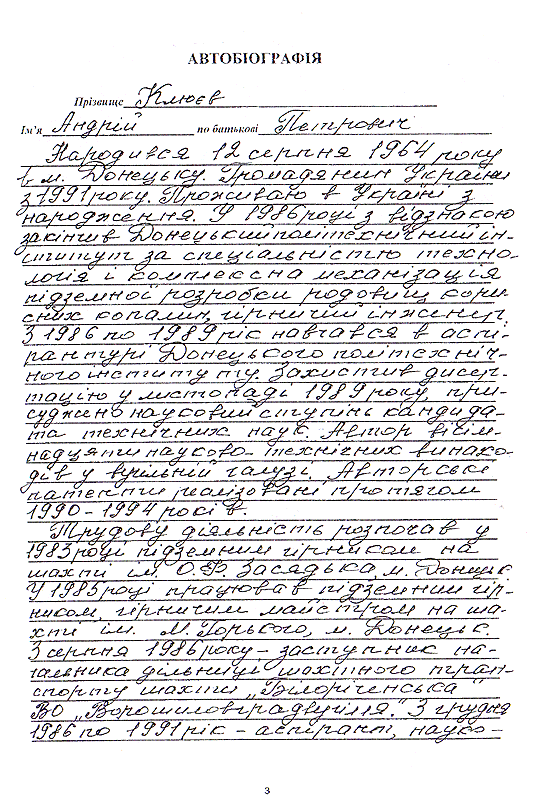 АВТОБІОГРАФІЯ
Прізвище Клюєв
Ім'я Андрій по батькові Петрович
Народився 12 серпня 1964 року
в м. Донецьку. Громадянин України
з 1991 року. Проживаю в Україні з
народження. У 1986 році з відзнакою
закінчив Донецький політехнічний ін-
ститут за спеціальністю техно-
логія і комплексна механізація
підземної розробки родовищ кори-
сних копалин, гірничий інженер.
З 1986 по 1989 рік навчався в аспі-
рантурі Донецького політехніч-
ного інституту. Захистив дисер-
тацію у листопаді 1989 року, при-
суджено науковий ступінь кандида-
та технічних наук. Автор вісім-
надцяти науково-технічних винахо-
дів у вугільній галузі. Авторські
патенти реалізовані протягом
1990-1994 років.
Трудову діяльність розпочав у
1983 році підземним гірником на
шахті ім. О.Ф. Засядька, м. Донецьк.
У 1985 році працював підземним гір-
ником, гірничим майстром на ша-
хті ім. М. Горького, м. Донецьк.
З серпня 1986 року - заступник на-
чальника дільниці шахтного тран-
спорту шахти „Білоріченська"
ВО „Ворошиловградвугілля." З грудня
1986 по 1991 рік - аспірант, науко-
3